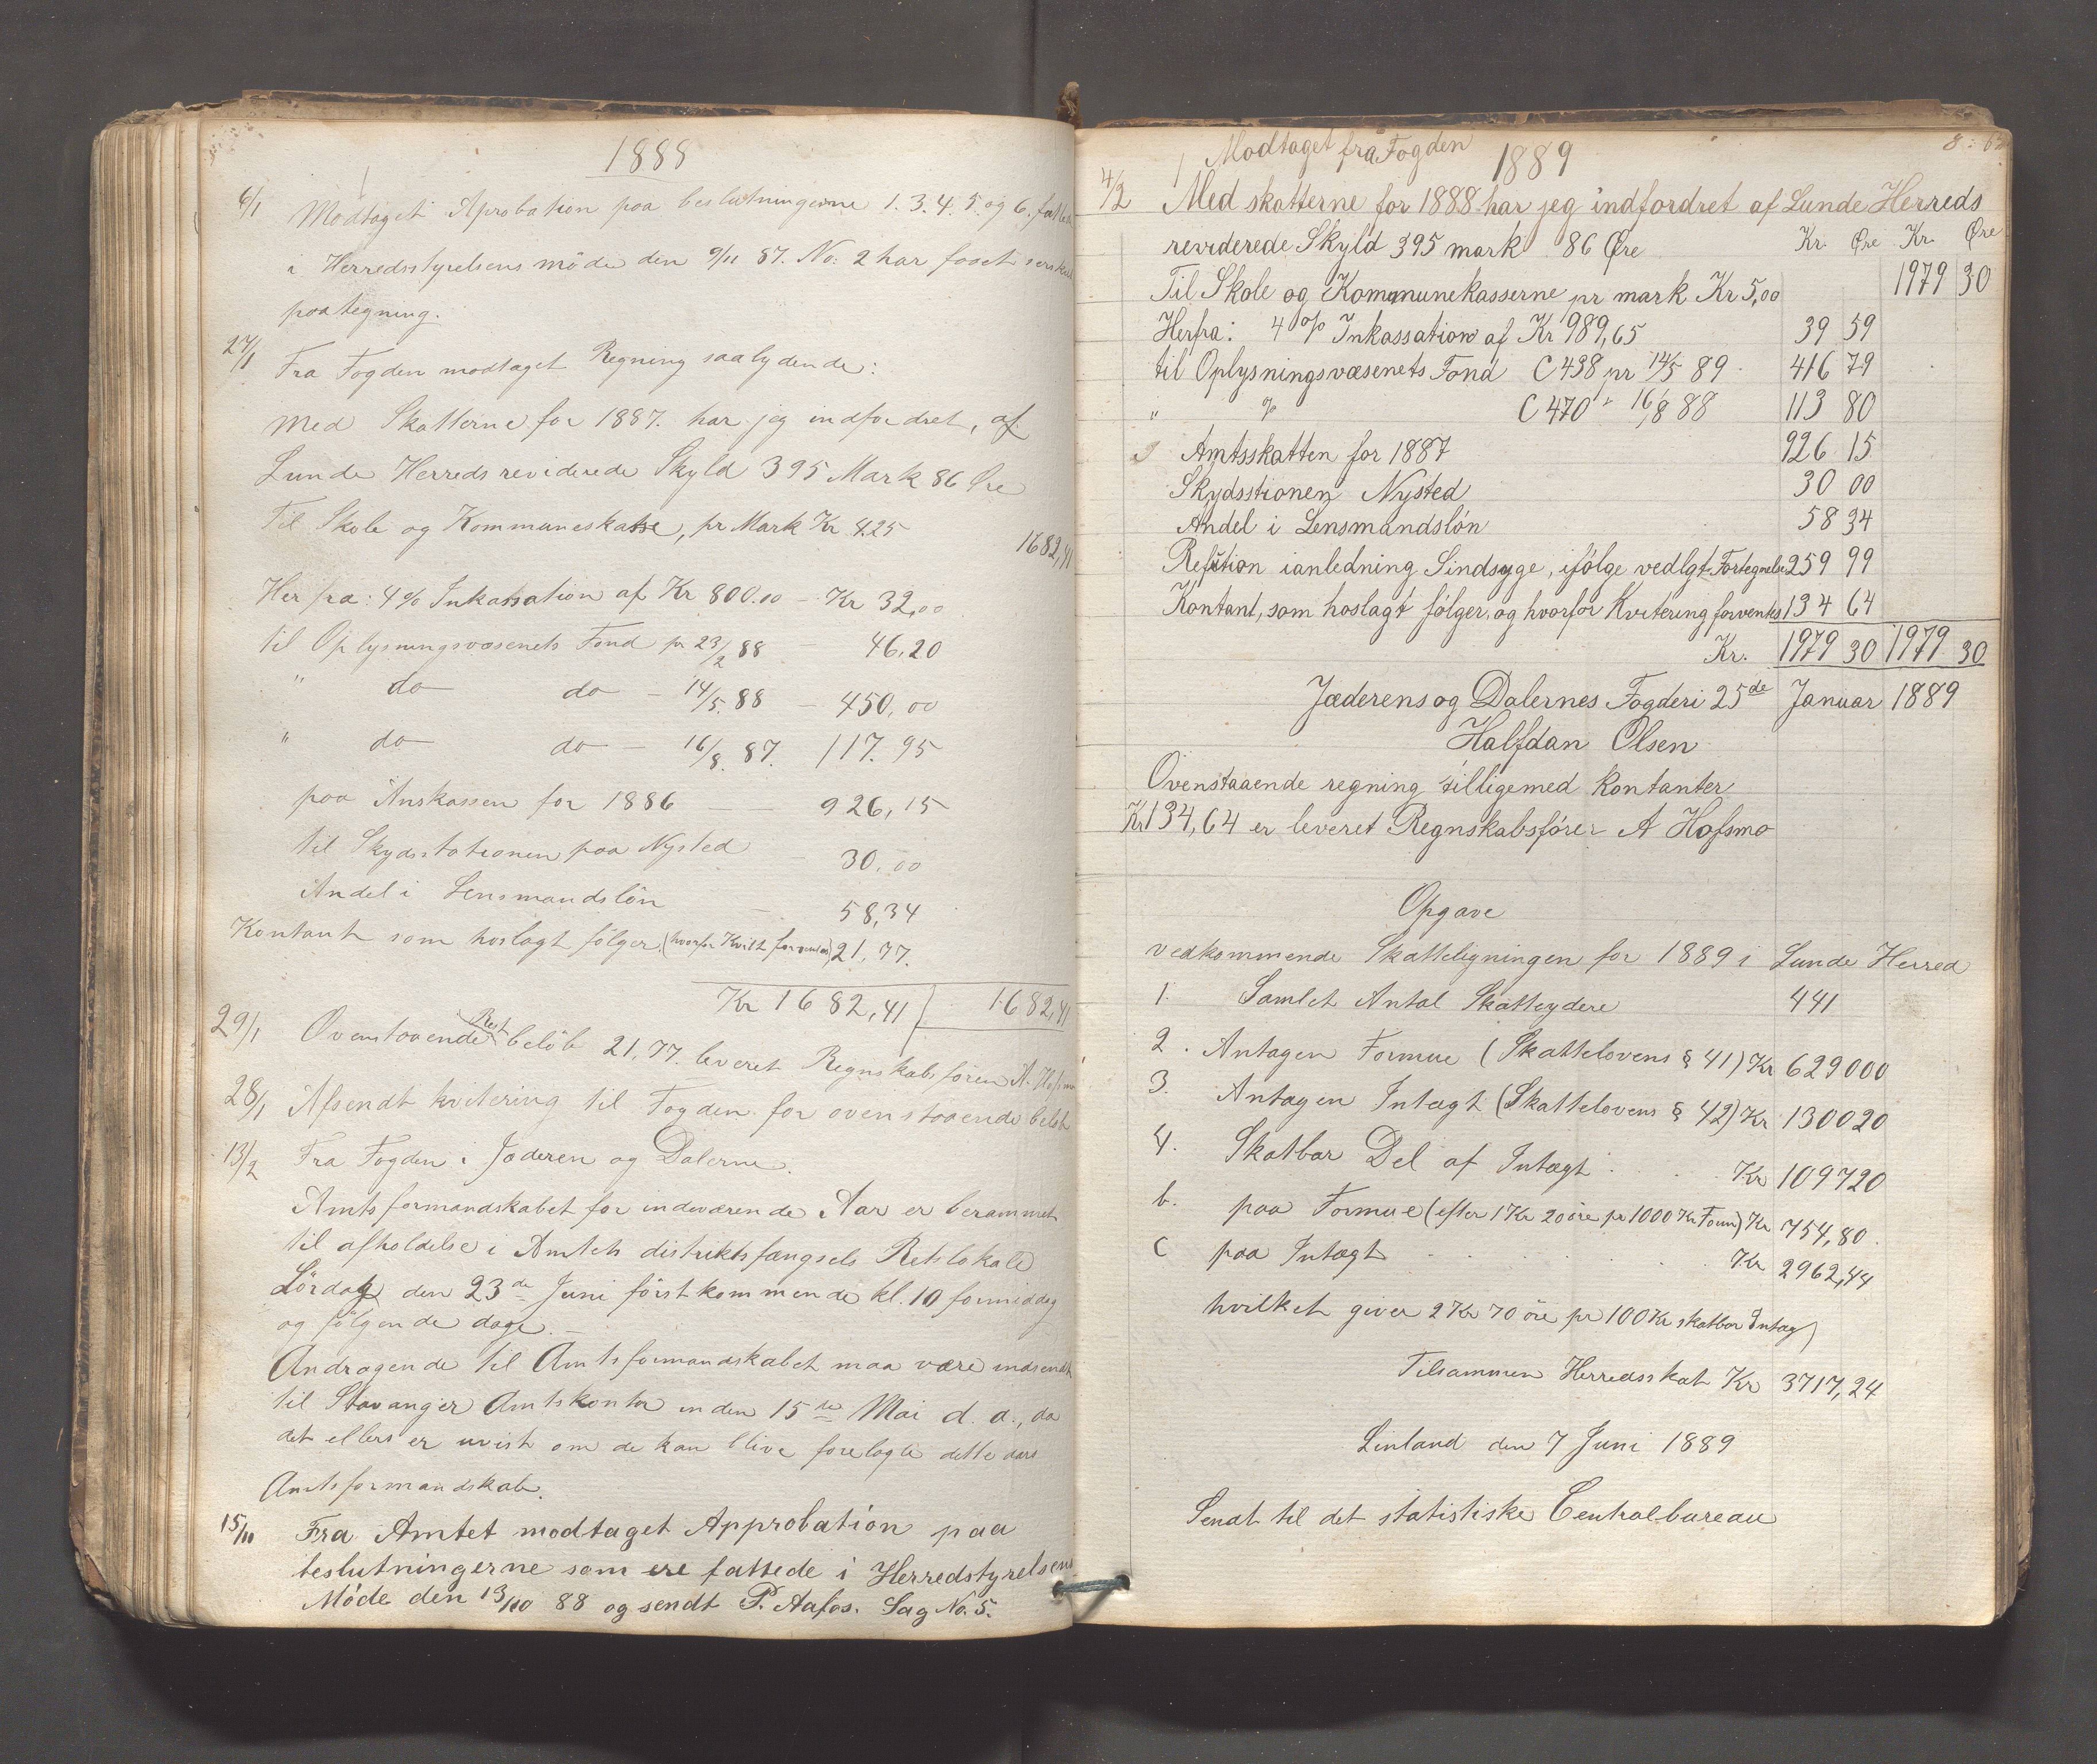 1888
6/1 Modtaget Aprobation paa beslutningerne 1. 3. 4. 5. og 6. fattede
i Herredsstyrelsens möde den 9/11 87. No: 2 har faaet
paategning.
27/1 Fra Fogden modtaget Regning saalydende:
Med Skatterne for 1887. har jeg indfordret, af
Lunde Herreds reviderede Skyld 395 Mark 86 Øre
Til Skole og Kommuneskatse, pr Mark Kr 4.25 1682,41
Herfra: 4% Inkassation af Kr 800.00 – Kr 32,00
til Oplysningsvæsenets Fond pr 23/2 88 – 46.20
" do do – 14/5. 88 – 450,00
" do do – 16/8. 87. 117.95
paa Amskassen for 1886 — 926,15
til Skydsstationen paa Nysted – 30,00
Andel i Lensmandslön – 58,34
Kontant som hoslagt fölger, (hvorfor Kvitt forventes) 21,77.
Kr 1682,41 1682,41
29/1 Ovenstaaende Rest beløb 21,77. leveret Regnskabsføren A. Hofsmo
28/1 Afsendt kvitering til Fogden for ovenstaaende beløb
13/2 Fra Fogden i Jæderen og Dalerne.
Amtsformandskabet for indeværende Aar er berammet
til afholdelse i Amtets distriktsfængsels Retslokale
Lördag den 23de Juni förstkommende kl. 10 formiddag
og fölgende dage. –
Andragende til Amtsformandskabet maa være indsendt
til Stavanger Amtskontor inden 15de Mai d. a., da
det ellers er uvist om de kan blive forelagte dette aars
Amtsformandskab.
15/11 Fra Amtet modtaget Approbation paa
beslutningerne som ere fattede i Herredstyrelsens
Møde den 13/10 88 og sendt P. Aafos. Sag No. 5.
Modtaget fra Fogden 1889
4/2 Med skatterne for 1888 har jeg indfordret af Lunde Herreds
reviderede Skyld 395 mark 86 Øre Kr. Øre Kr. Øre
Til Skole og Kommunekasserne pr mark Kr 5,00 1979 30
Herfra: 4 % Inkassation af Kr 989,65 39 59
til Oplysningsvæsenets Fond C 438 pr 14/5 89 416 79
" % C 470 " 16/8 88 113 80
Amtsskatten for 1887 926 15
Skydsstionen Nysted 30 00
Andel i Lensmandslön 58 34
Refution ianledning Sindsyge, ifölge vedlgt Fortegnelse 259 99
Kontant, som hoslagt fölger, og hvorfor Kvitering forventes 134 64
Kr. 1979 30 1979 30
Jæderens og Dalernes Fogderi 25de Januar 1889
Halfdan Olsen
Ovenstaaende regning tilligemed kontanter
Kr 134,64 er leveret Regnskabsfører A Hofsmo
Opgave
vedkommende Skatteligningen for 1889 i Lunde Herred
1. Samlet Antal Skatteydere 441
2. Antagen Formue (Skattelovens § 41) Kr 629000
3. Antagen Intægt (Skattelovens § 42) Kr 130020
4. Skatbar Del af Intægt Kr 109720
b. paa Formue (efter 1 Kr 20 öre pr 1000 Kr Form) Kr 754,80
C paa Intægt Kr 2962,44
hvilket giver 2 Kr 70 öre pr 100 Kr skatbar Intæg)
Tilsammen Herredsskat Kr 3717,24
Linland den 7 Juni 1889
Sendt til det statistiske Centralbureau